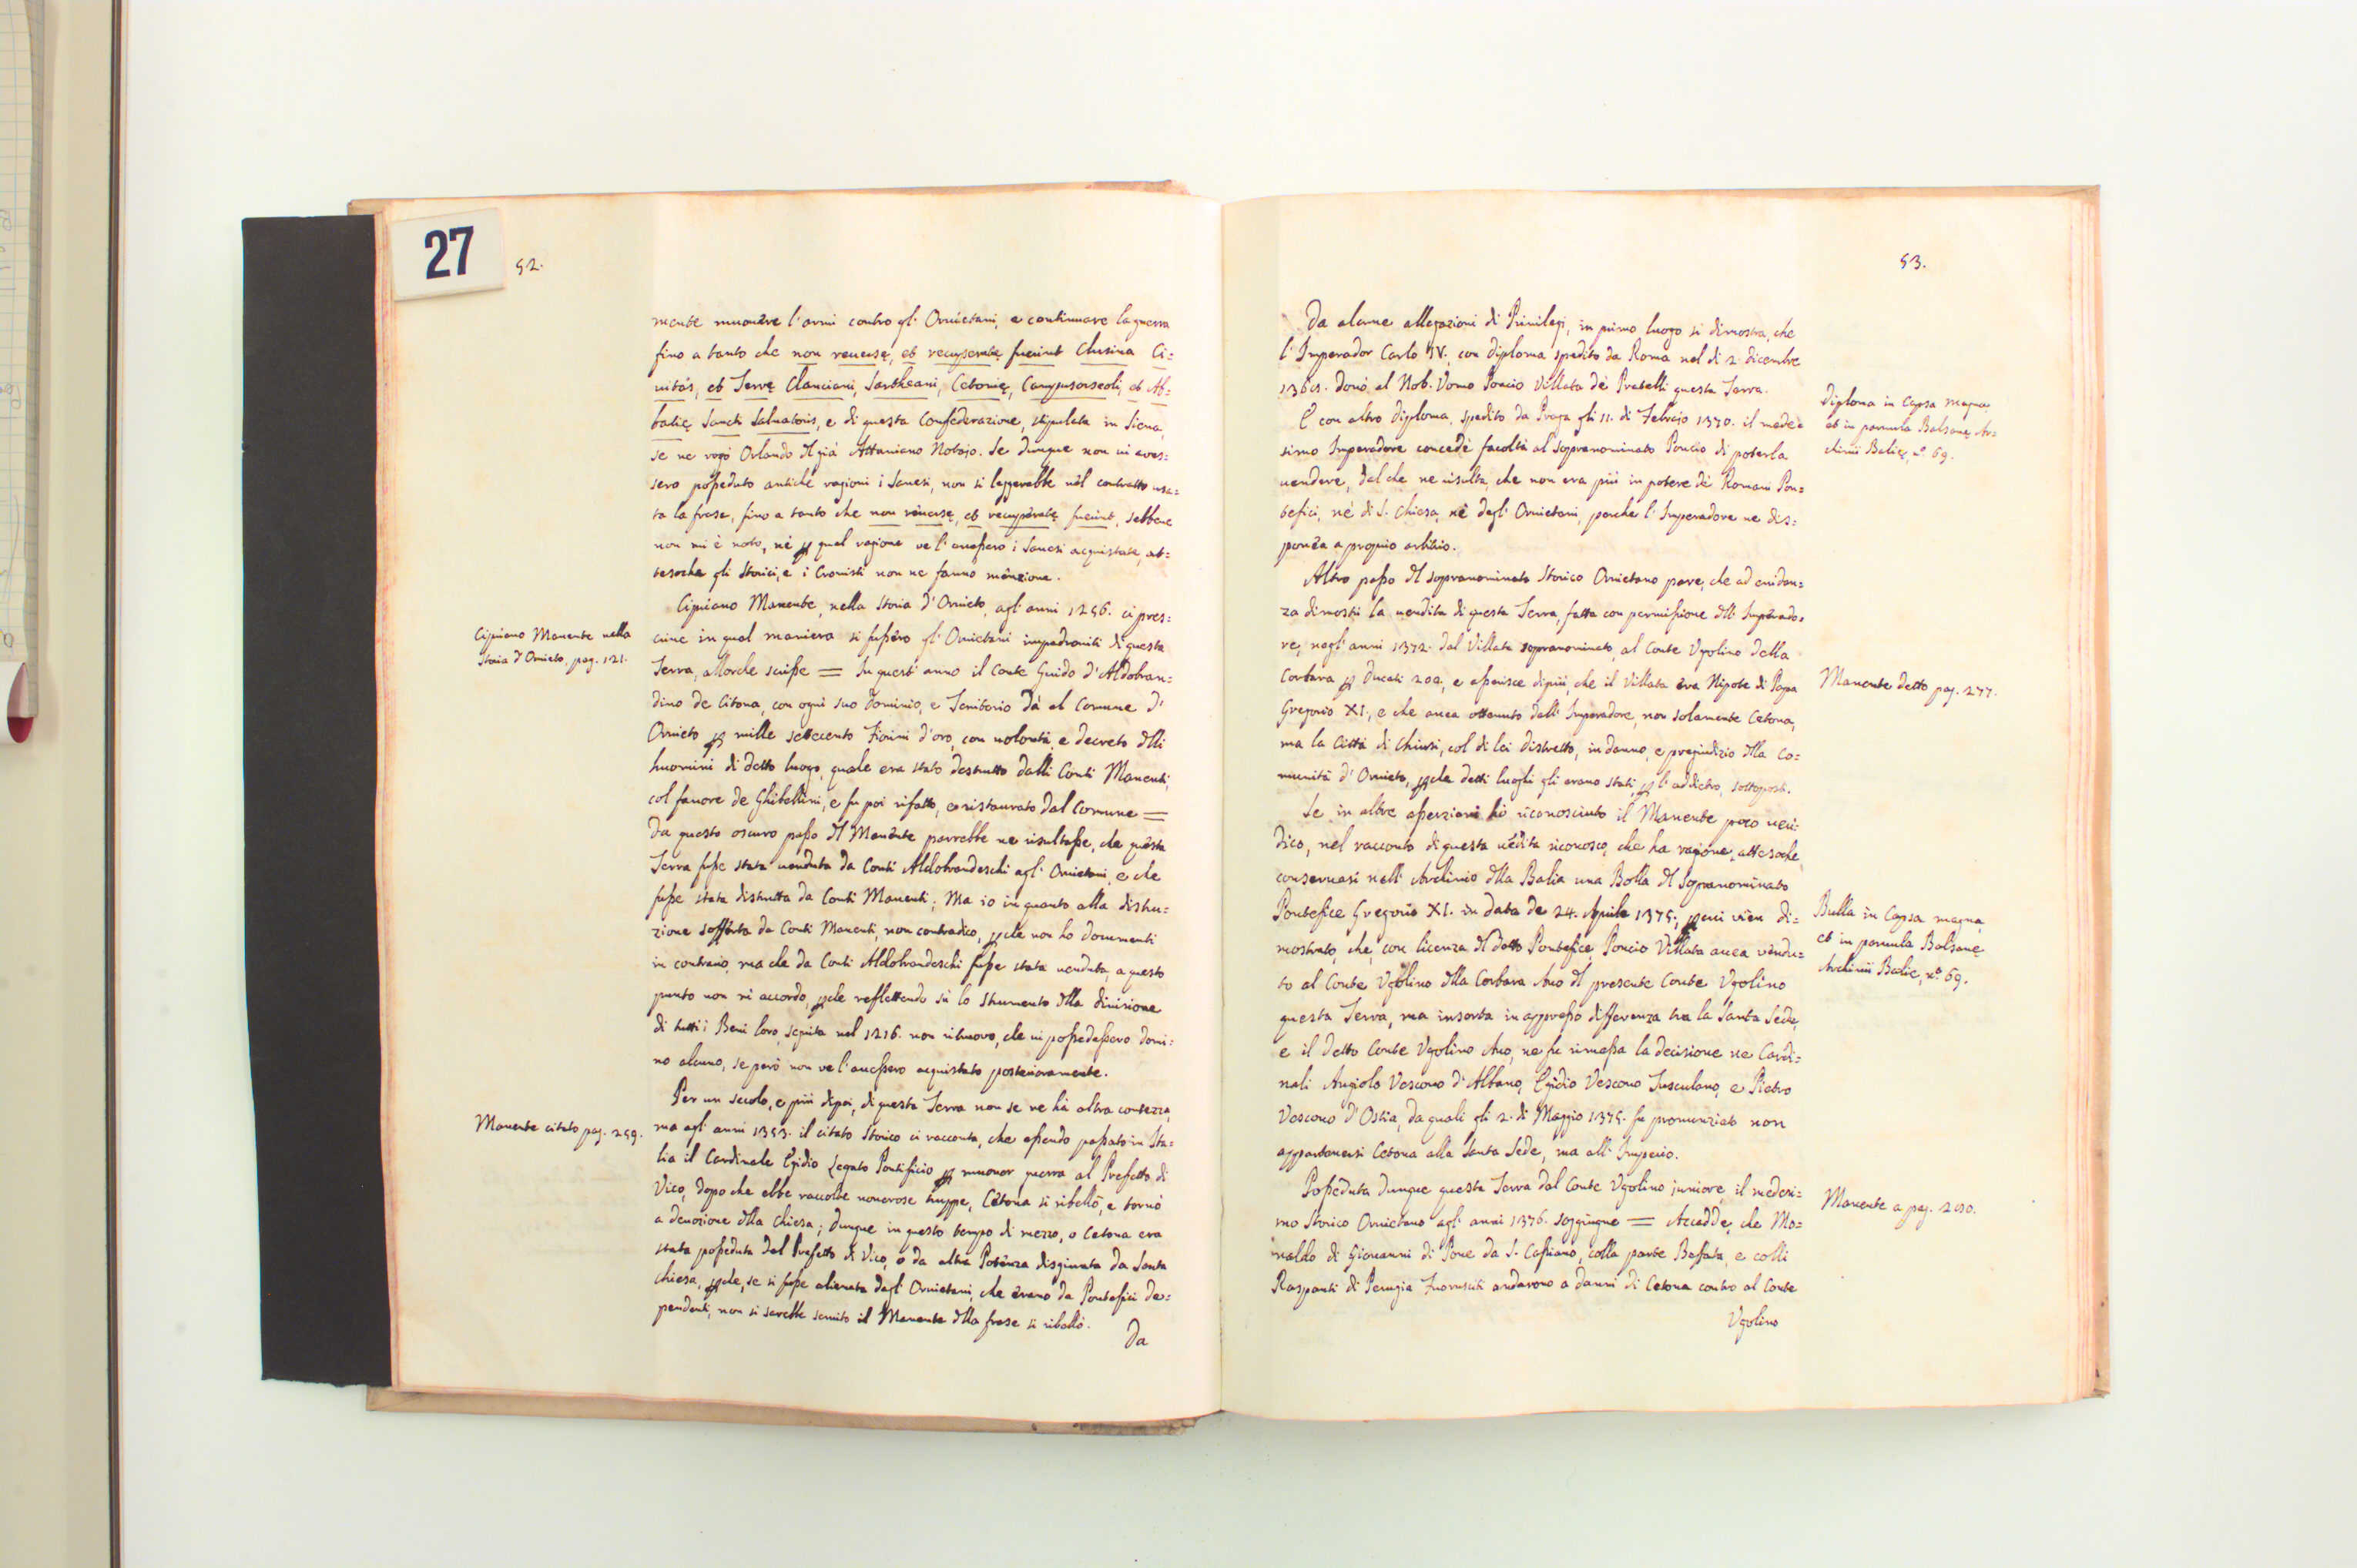 27
52.
mente muouere l'armi contro gl' Oruietani, e continuare la guerra
fino a tanto che non reuersę, et recuperatę fuerint Clusina Ci=
uitas, et Terrę Clanciani, Sartheani, Cetonię, Campusorseoli, et Ab=
batię Sancti Saluatoris, e di questa Confederazione, stipulata in Siena,
se ne rogò Orlando del già Attauiano Notajo. Se dunque non ui aues=
sero posseduto antiche ragioni i Sanesi, non si leggerebbe nel contratto usa=
ta la frase, fino a tanto che non reuersę, et recuperatę fuerint, sebbene
non mi è noto, nè per qual ragione ve l'auessero i Sanesi acquistate, at=
tesoche gli Storici, e i Cronisti non ne fanno menzione.
Cipriano Manente nella
Storia d'Oruieto, pag. 121.
Cipriano Manente, nella Storia d'Oruieto, agl' anni 1256. ci pres=
criue in qual maniera si fussero gl' Oruietani impadroniti di questa
Terra, allorche scrisse = In quest' anno il Conte Guido d'Aldobran=
dino de Citona, con ogni suo Dominio, e Territorio dà al Comune d'
Oruieto per mille settecento Fiorini d'oro, con uolontà, e decreto delli
huomini di detto luogo, quale era stato destrutto dalli Conti Manenti,
col fauore de Ghibellini, e fu poi rifatto, e ristaurato dal Comune =
Da questo oscuro passo del Manente parrebbe ne risultasse, che questa
Terra fusse stata uenduta da Conti Aldobrandeschi agl' Oruietani, e che
fusse stata distrutta da Conti Manenti; Ma io in quanto alla distru=
zione sofferta da Conti Manenti, non contradico, perche non ho documenti
in contrario, ma che da Conti Aldobrandeschi fusse stata uenduta, a questo
punto non mi accordo, perche reflettendo sù lo Strumento della diuisione
di tutti i Beni loro, seguita nel 1216. non ritrouo, che ui possedessero domi=
no alcuno, se però non ve l'auessero acquistato posteriormente.
Manente citato pag. 259.
Per un secolo, e più dipoi, di questa Terra non se ne hà altra contezza,
ma agl' anni 1353. il citato Storico ci racconta, che essendo passato in Ita=
lia il Cardinale Egidio Legato Pontificio per muouer guerra al Prefetto di
Vico, dopo che ebbe raccolte numerose truppe, Cetona si ribellò, e tornò
a deuozione della Chiesa; dunque in questo tempo di mezzo, o Cetona era
stata posseduta dal Prefetto di Vico, o da altra Potenza disgiunta da Santa
Chiesa, perche, se si fusse alienata dagl' Oruietani, che erano da Pontefici de=
pendenti, non si sarebbe seruito il Manente della frase si ribellò.
Da
53.
Da alcune allegazioni di Priuilegi, in primo luogo si dimostra, che
l'Imperador Carlo IV., con diploma spedito da Roma nel dì 2. dicembre
donò al Nob. Vomo Poncio Villata de Pratelli questa Terra.
Diploma in Capsa magna,
et in paruula Balzanę Ar=
chiuii Balię, n.° 69.
E con altro diploma, spedito da Praga gli 11. di Febrajo 1370. il mede=
simo Imperadore concedè facoltà al sopranominato Poncio di poterla
uendere, dal che ne risulta, che non era più in potere de Romani Pon=
tefici, nè di S. Chiesa, nè degl' Oruietani, perche l'Imperadore ne dis=
poneua a proprio arbitrio.
Altro passo del sopranominato Storico Oruietano pare, che ad euiden=
za dimostri la uendita di questa Terra, fatta con permissione dell' Imperado=
re, negl' anni 1372. dal Villata sopranominato, al Conte Vgolino della
Manente detto pag. 277.
Corbara per Ducati e asserisce dipiù, che il Villata era Nipote di Papa
Gregorio XI., e che auea ottenuto dall' Imperadore, non solamente Cetona,
ma la Città di Chiusi, col di lei distretto, in danno, e pregiudizio della Co=
munità d'Oruieto, perche detti luoghi gli erano stati, per l'addietro, sottoposti.
Se in altre asserzioni hò riconosciuto il Manente poco ueri=
dico, nel racconto di questa uedita riconosco, che ha ragione, attesoche
conseruasi nell' Archiuio della Balia una Bolla del sopranominato
Bulla in Capsa magna,
et in paruula Balzanę
Archiuii Balię, n.° 69.
Pontefice Gregorio XI. in data de 24. Aprile 1375., per cui vien di=
mostrato, che, con licenza del detto Pontefice, Poncio Villata auea vendu=
to al Conte Vgolino della Corbara Auo del presente Conte Vgolino
questa Terra, ma insorta in appresso differenza tra la Santa Sede,
e il detto Conte Vgolino Auo, ne fu rimessa la decisione ne Cardi=
nali Angiolo Vescouo d'Albano, Egidio Vescouo Tusculano, e Pietro
Vescouo d'Ostia, da quali gli 2. di Maggio 1375. fu pronunziato non
appartenersi Cetona alla Santa Sede, ma all' Imperio.
Manente a pag. 280.
Posseduta dunque questa Terra dal Conte Vgolino juniore, il medesi=
mo Storico Oruietano agl' anni 1376. soggiugne = Accadde, che Mo=
naldo di Giouanni di Pone da S. Cassiano, colla parte Beffata, e colli
Raspanti di Perugia Fuorusciti andarono a danni di Cetona contro al Conte
Vgolino